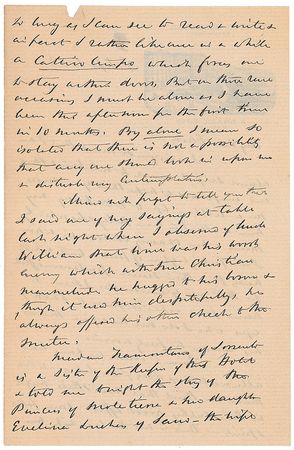 so long as I can see to read & write &
in fact I rather like once in a while
a Cattivo tempo which forces one
to stay within doors. But on these rare
occasions I must be alone as I have
been this afternoon for the first time
in 10 months. By alone I mean so
isolated that there is not a possibility
that any one should look in upon me
& disturb my Contemplations.
not forget to tell you that
I said one of my sayings at table
last night when I observed of Uncle
William that wine was his worst
enemy which with true Christian
he hugged to his bosom &
though it used him despitefully, he
always offered his other cheek to the
smiter.
Madam Tramontano of Sorrento
is a Sister of the Keeper of this Hotel
& told me tonight the story of the
Princess of & her daughter
Evelina Duchess of the wife